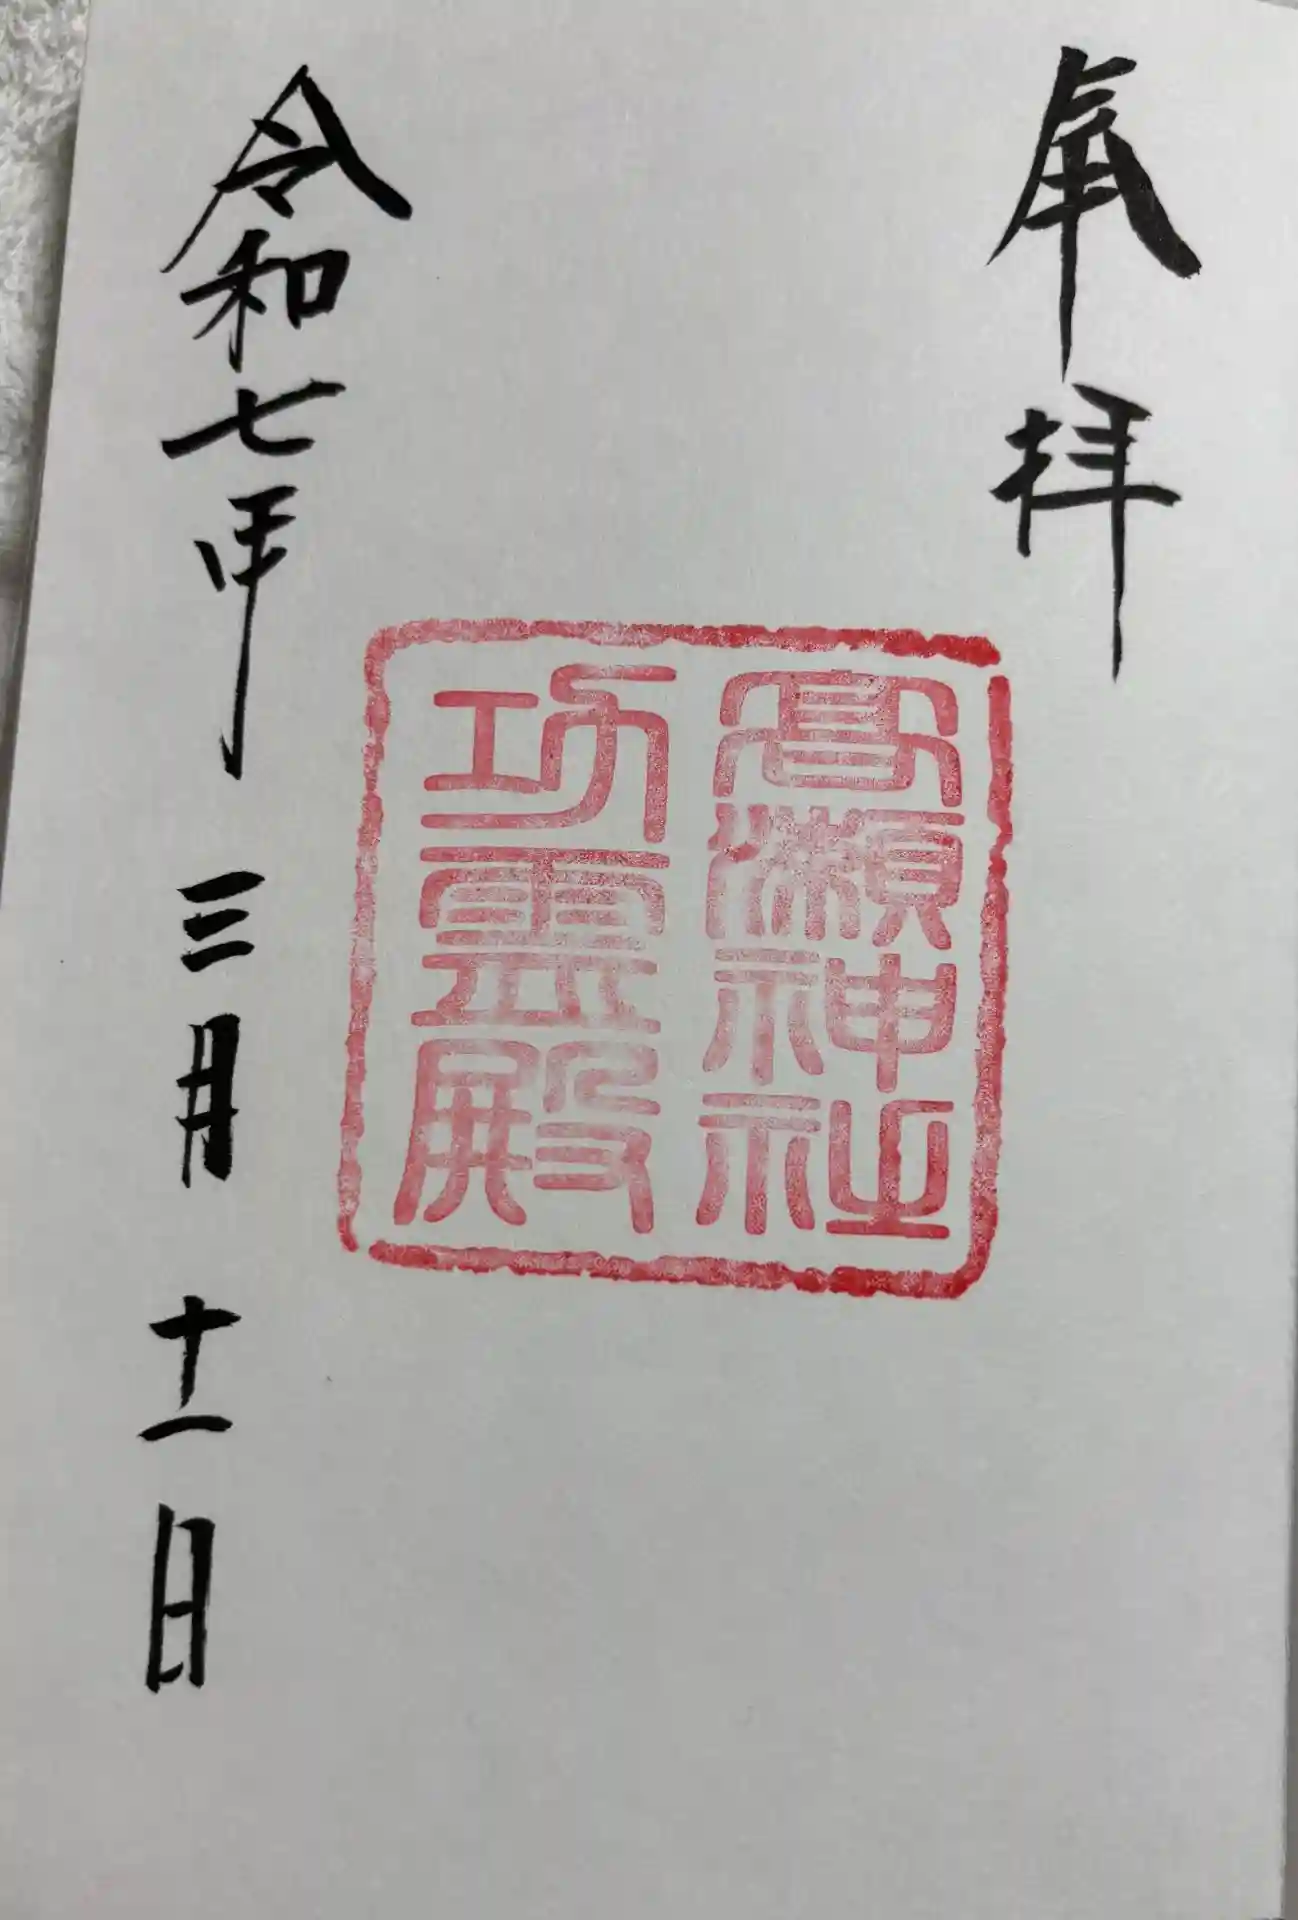 奉拝
高瀬神社
功霊殿
令和七年 三月 十一日